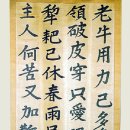 老牛用力已多
領破皮穿只愛
犁耙已休春雨
主人何苦又加